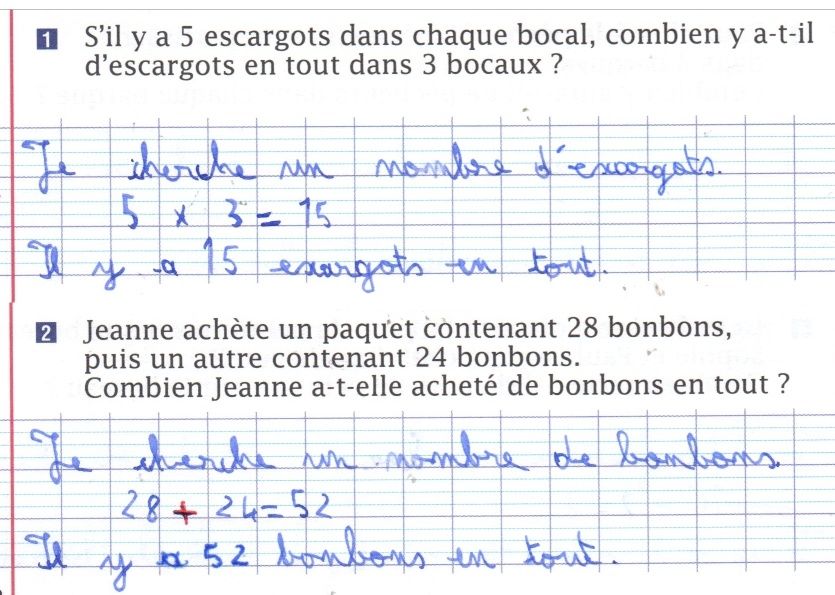 1 S'il y a 5 escargots dans chaque bocal, combien y a-t-il
d'escargots en tout dans 3 bocaux ?
Je cherche un nombre d'escargots.
5 x 3 = 15
Il y a 15 escargots en tout.
2 Jeanne achète un paquet contenant 28 bonbons,
puis un autre contenant 24 bonbons.
Combien Jeanne a-t-elle acheté de bonbons en tout ?
Je cherche un nombre de bonbons.
28 + 24 = 52
Il y a 52 bonbons en tout.